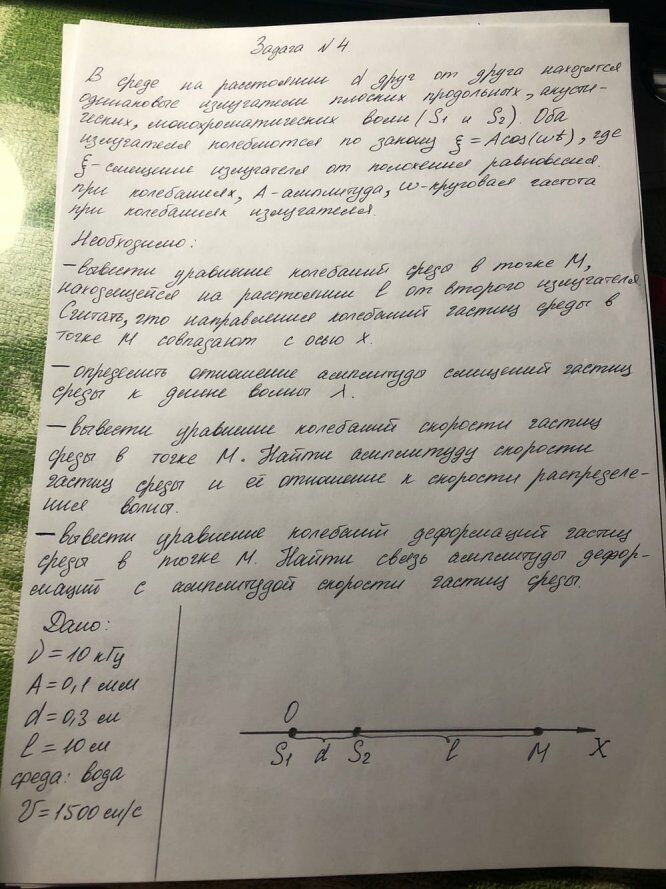 Задача N 4
В среде на расстоянии d друг от друга находятся
одинаковые излучатели плоских продольных, акусти-
ческих, монохроматических волн (S1 и S2). Оба
излучателя колеблются по закону ξ = Acos(ωt), где
ξ - смещение излучателя от положения равновесия
при колебаниях, A - амплитуда, ω - круговая частота
при колебаниях излучателя.
Необходимо:
- вывести уравнение колебаний среды в точке M,
находящейся на расстоянии l от второго излучателя.
Считать, что направления колебаний частиц среды в
точке M совпадают с осью x.
- определить отношение амплитуды смещений частиц
среды к длине волны λ.
- вывести уравнение колебаний скорости частиц
среды в точке M. Найти амплитуду скорости
частиц среды и её отношение к скорости распределе-
ния волны.
- вывести уравнение колебаний деформаций частиц
среды в точке M. Найти связь амплитуды дефор-
маций с амплитудой скорости частиц среды.
Дано:
ν = 10 кГц
A = 0,1 мм
d = 0,3 м
l = 10 м
среда: вода
υ = 1500 м/с
O
S1 d S2 l M X